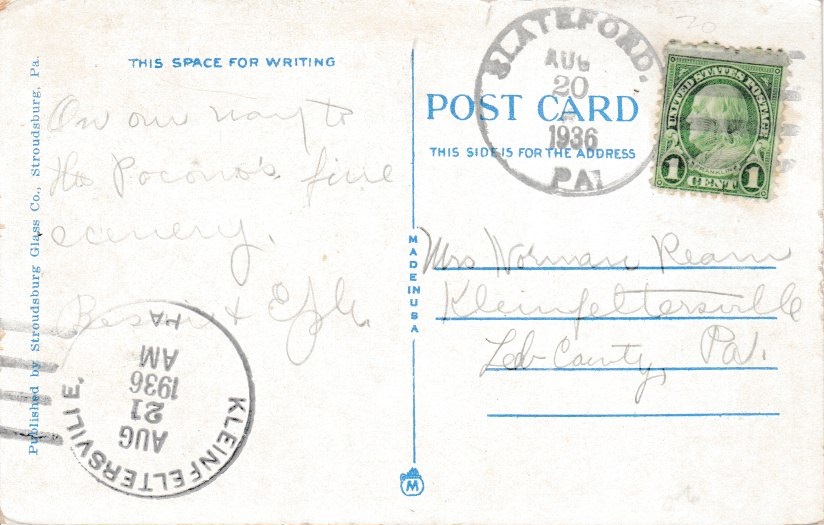 THIS SPACE FOR WRITING
On our way to
the Pocono's fine
scenery.
Published by Stroudsburg Glass Co., Stroudsburg, Pa.
KLEINFELTERSVILLE,
PA
AUG
21
AM
1936
SLATEFORD.
AUG
20
1936
PA
UNITED STATES POSTAGE
1 CENT 1
POST CARD
THIS SIDE IS FOR THE ADDRESS
MADE IN USA
Mrs Norman Ream
Kleinfeltersville
Leb County, Pa.
M